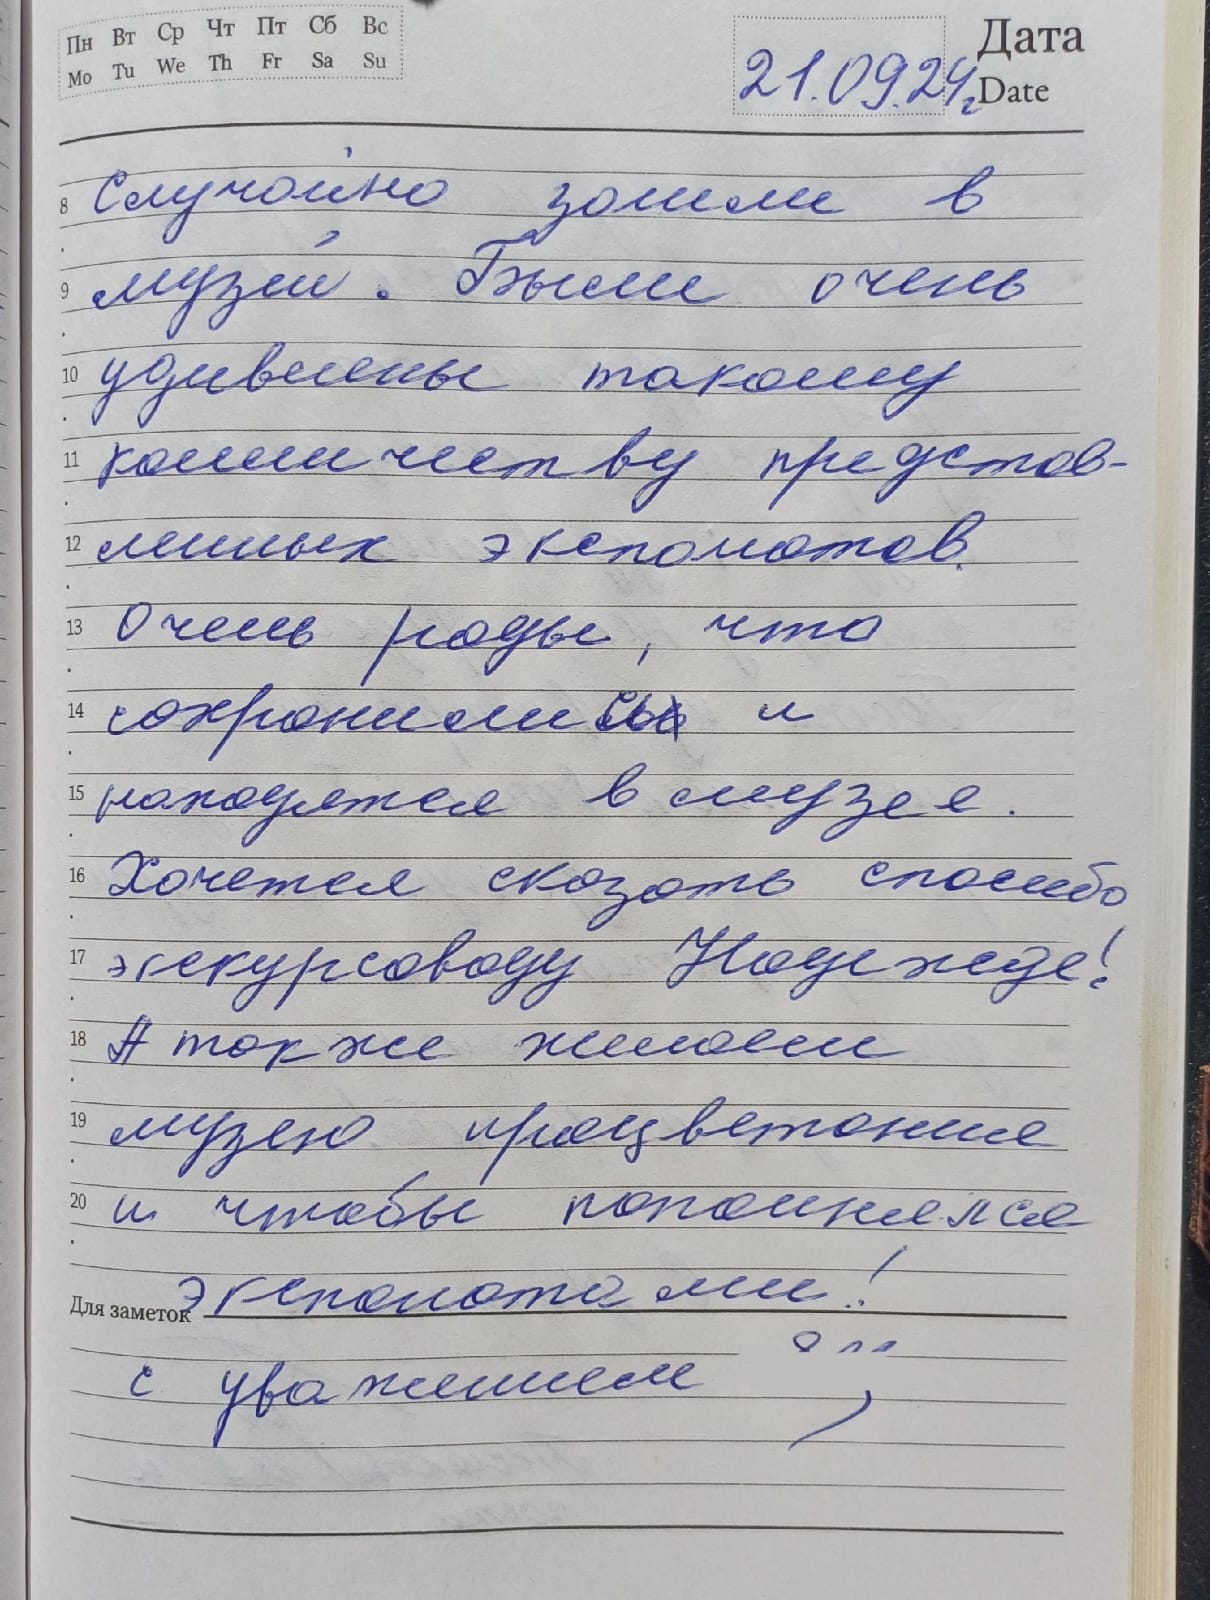 Пн Вт Ср Чт Пт Сб Вс
Mo Tu We Th Fr Sa Su
Дата
21.09.24г.
Date
8 Случайно зашли в
9 музей. Были очень
10 удивлены такому
11 количеству представ-
12 ленных экспонатов.
13 Очень рады, что
14 сохранились и
15 находятся в музее.
16 Хочется сказать спасибо
17 экскурсоводу Надежде!
18 А также желаем
19 музею процветание
20 и чтобы пополнялся
Для заметок экспонатами!
с уважением